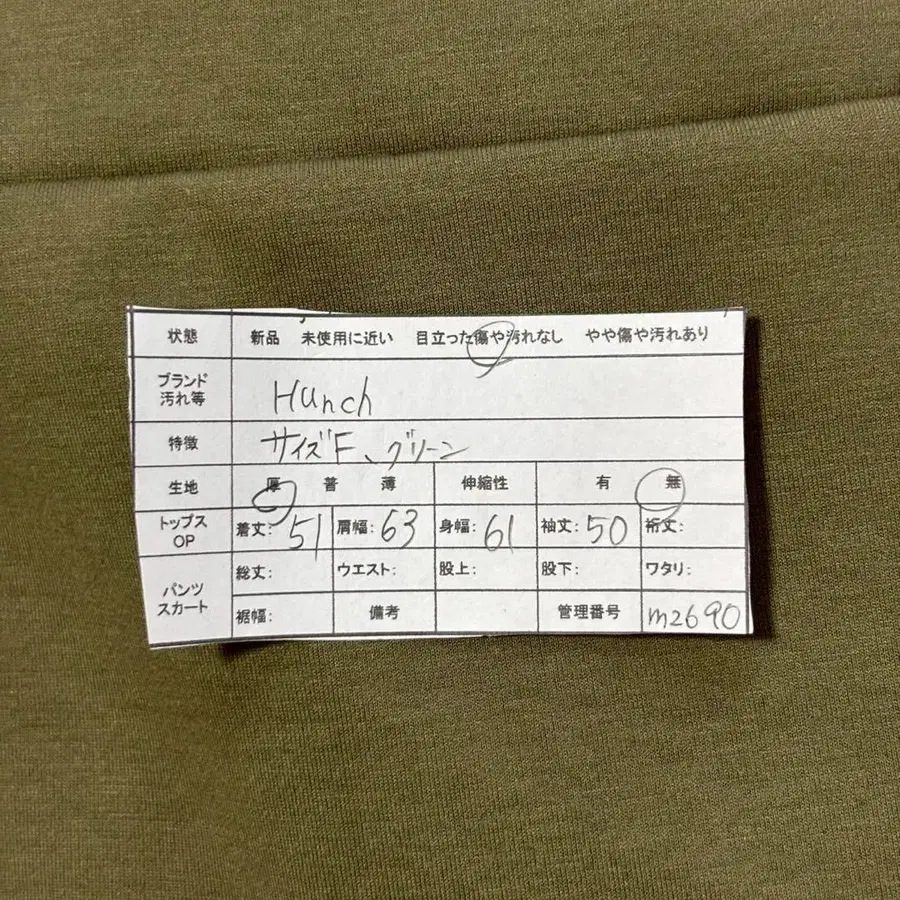 状態 新品 未使用に近い 目立った傷や汚れなし やや傷や汚れあり
ブランド
汚れ等 Hunch
特徴 サイズF、グリーン
生地 厚 普 薄 伸縮性 有 無
トップス
OP 着丈: 51 肩幅: 63 身幅: 61 袖丈: 50 裄丈:
パンツ
スカート 総丈: ウエスト: 股上: 股下: ワタリ:
裾幅: 備考 管理番号 m2690